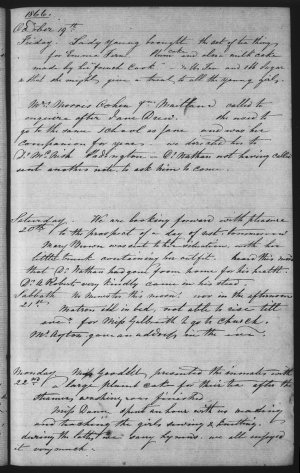 1866.
October 19th
Friday. Lady Young brought the set of tea things
for Emma Plum cake and also milk cake
made by her French Cook to the Tea and Sugar
& that she might, give a treat, to all the Young Girls.
Mrs Morris Cohen & Mrs Maitland called to
enquire after Jane Drew. She used to
go to the same School as Jane and was her
companion for years. we directed her to
Dr McKish Paddington Dr Nathan not having called
sent another note to ask him to come.
Saturday We are looking forward with pleasure
20th to the prospect of a day of rest tomorrow
Mary Brown went to her situation, with her
little trunk containing her outfit. heard this morn
that Dr Nathan had gone from home for his health.
Dr A Roberts very kindly came in his stead.
Sabbath No minister this morn: nor in the afternoon
21st Matron ill in bed, not able to rise till
for Miss Galbraith to go to church.
Mr Ayton gave an address in the eve.
Monday Miss Goodlet presented the inmates with
22nd a large plum cake for their tea after the
steamers washing was finished
Miss Dawn spent an hour with us reading
and teaching the girls sewing & knitting.
during the latter we sang hymns. we all enjoyed
it very much.